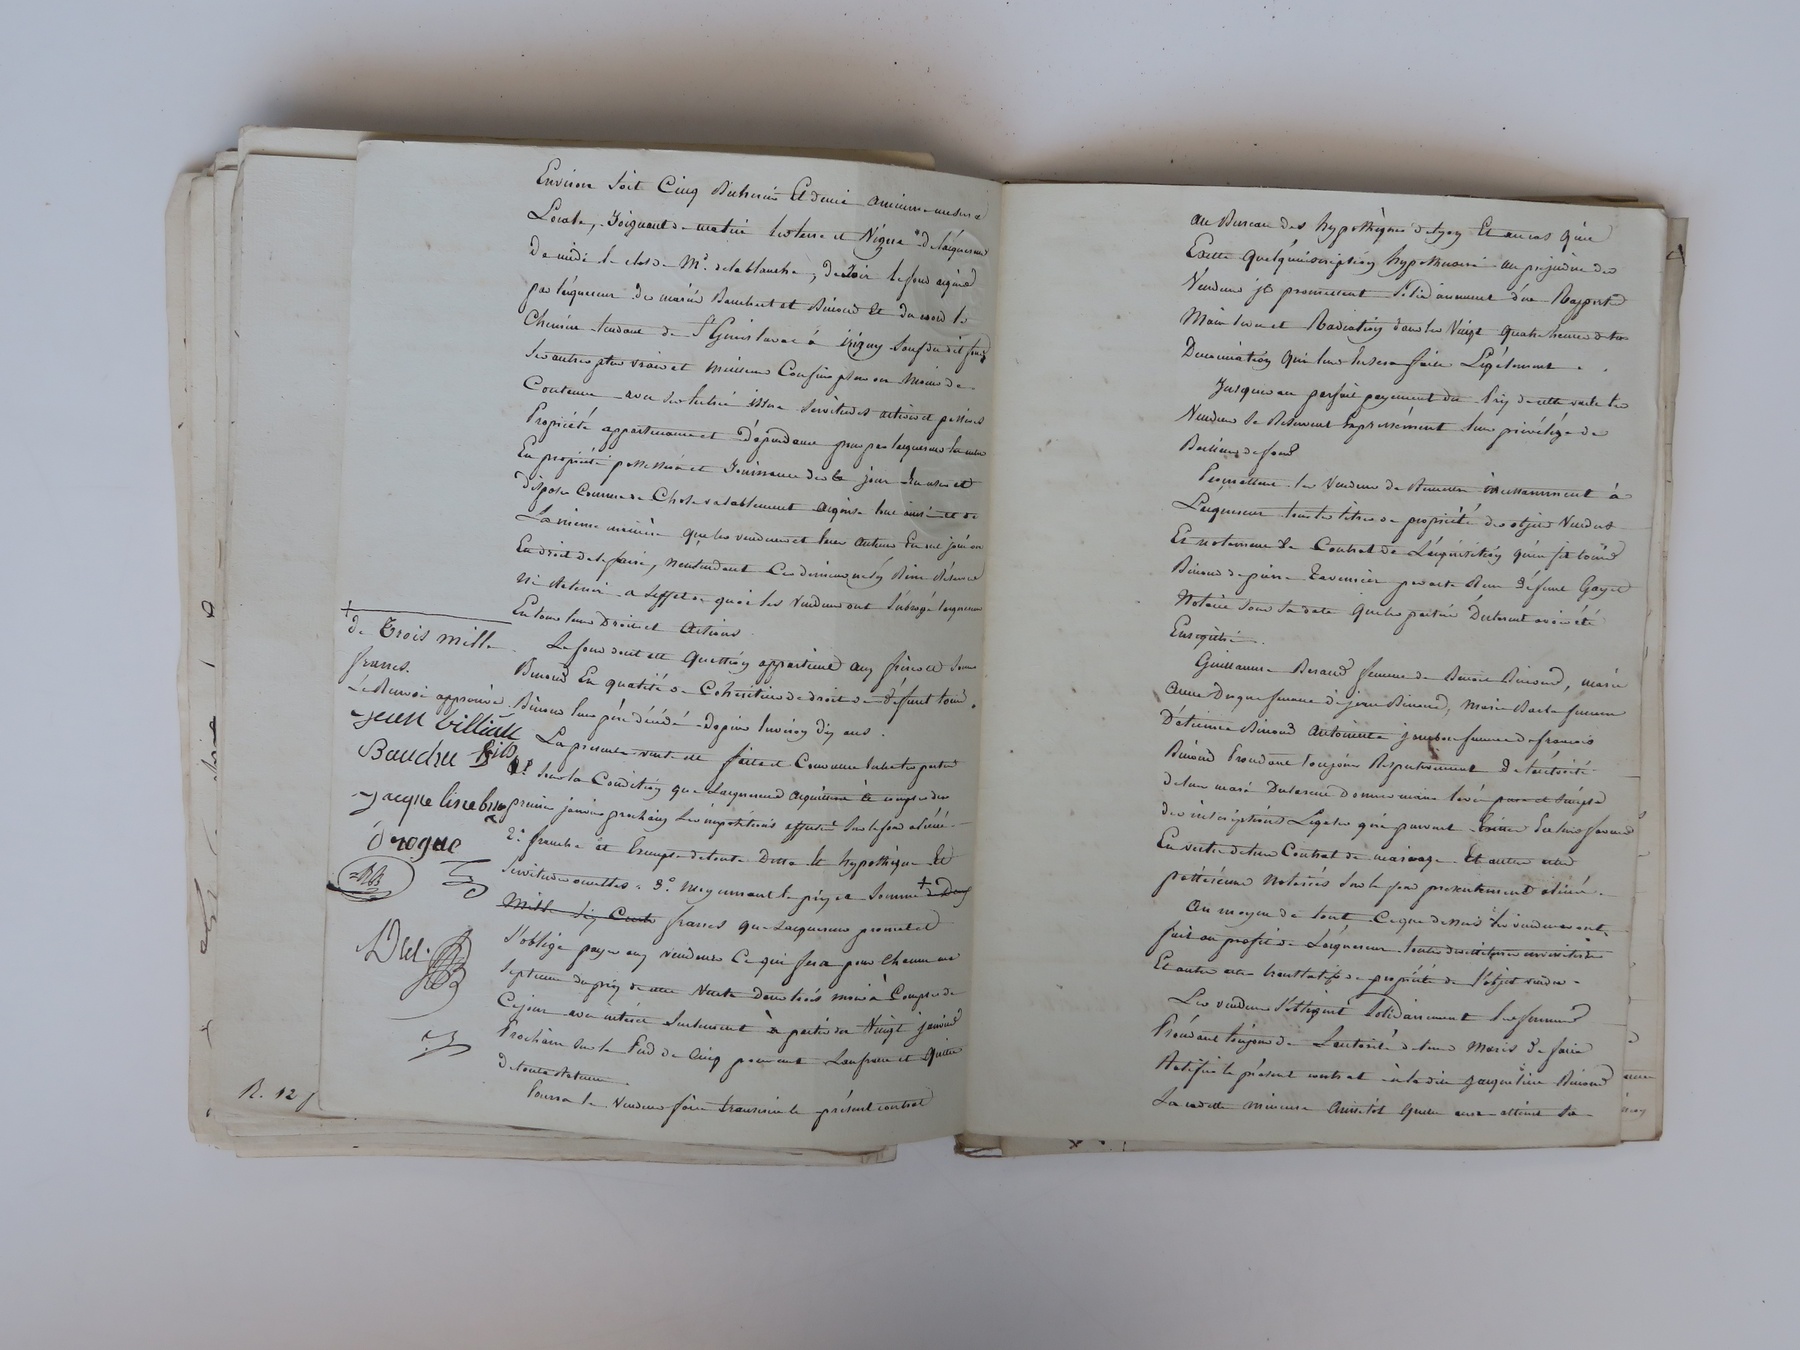 Environ soit Cinq Bicherées Et demie ancienne mesure
Locale, Joignant de matin les terre et Vigne de l'acquereur
de midi le clos de Mr. delablanche, de soir le fond acquis
par l'acquereur des mariés Baucheret et Binoud Et du nord le
Chemin tendant de St Genis laval à irigny Sauf du dit fond
ses autres plus vrais et meilleurs Confins plus ou Moins de
Contenue avec ses Entrée issue Servitudes actives et passives
Propriété appartenance et dépendance pour par l'acquereur
En propriété possession et Jouissance dès ce jour En user et
disposer Comme de Chose valablement acquise tout ainsi et de
La même manière que les vendeurs et leurs auteurs En ont joui ou
En droit de le faire, n'entendant Ces derniers n'y Rien Réserver
ni Retenir a l'effet de quoi les Vendeurs ont Subrogé l'acquereur
En tous leurs Droits et Actions.
Le fond dont est Question appartient aux frères et Soeurs
Binoud En qualité de Cohéritiers de droit de défunt
Binoud leur père décédé Depuis Environ dix ans.
La presente vente est faite et Convenue Entre les parties
Sous la Condition que l'acquereur acquittera à compter du
premier janvier prochain Les impositions affectées Sur le fond aliéné
2.° franche et Exempte de toute Dette Et hypothèque Et
Servitudes occultes. 3.° Moyennant le prix et Somme + de Deux
Mille Six Cents francs que l'acquereur promet et
S'oblige payer aux vendeurs Ce qui fera pour Chacun un
Septieme du prix de cette Vente Dans trois mois à Compter de
Ce jour avec intérêt Seulement à partir du Vingt janvier
Prochain Sur le Pied de Cinq pour cent L'an franc et Quitte
de toute Retenue
Pourra le Vendeur faire transcrire le présent contrat
+
de Trois mille
francs.
Le Renvoi approuvé
jean Villiam
Baudru fils
jacqueline binoud
drogue
R. 12
au Bureau des hypothèques de Lyon Et au cas qu'il
Existe Quelqu'inscription hypothécaire au préjudice des
Vendeurs ils promettent Solidairement d'en Rapporter
Main levée et Radiation dans les Vingt quatre heures de la
Dénonciation Qui leur En sera faite Légalement.
Jusqu'au parfait payement du Prix de cette vente les
Vendeurs Se Réservent Expressément leur privilège de
Bailleur de fond
Promettent les Vendeurs de Remettre incessamment à
L'acquereur tous les titres de propriété des objets Vendus
Et notamment Le Contrat de L'acquisition qu'en fit
Binoud de pierre Tavernier par acte Reçu Défunt Gayet
Notaire Sous Sa date Que les parties Déclarent avoir été
Enregistré.
Guillaume Beraud femme de Benoit Binoud, marie
anne Drogue femme de jean Binoud, Marie femme
D'étienne Binoud Antoinette femme de francois
Binoud Procédant toujours Respectivement De l'autorité
de leurs maris Déclarent Donner main levée pure et Simple
des inscriptions Légales qui peuvent Exister En leur faveur
En vertu de leur Contrat de mariage Et autres actes
postérieurs Notariés Sur le fond présentement aliéné.
Au moyen de tout Ce que dessus Les vendeurs ont
fait au profit de L'acquereur toutes démissions
Et autres actes translatifs de propriété de l'objet vendu.
Les vendeurs S'obligent Solidairement Les femmes
Procédant toujours de L'autorité de leurs Maris De faire
Ratifier le présent contrat à la dite jacqueline Binoud
La cadette mineure Aussitôt Qu'elle aura atteint Sa